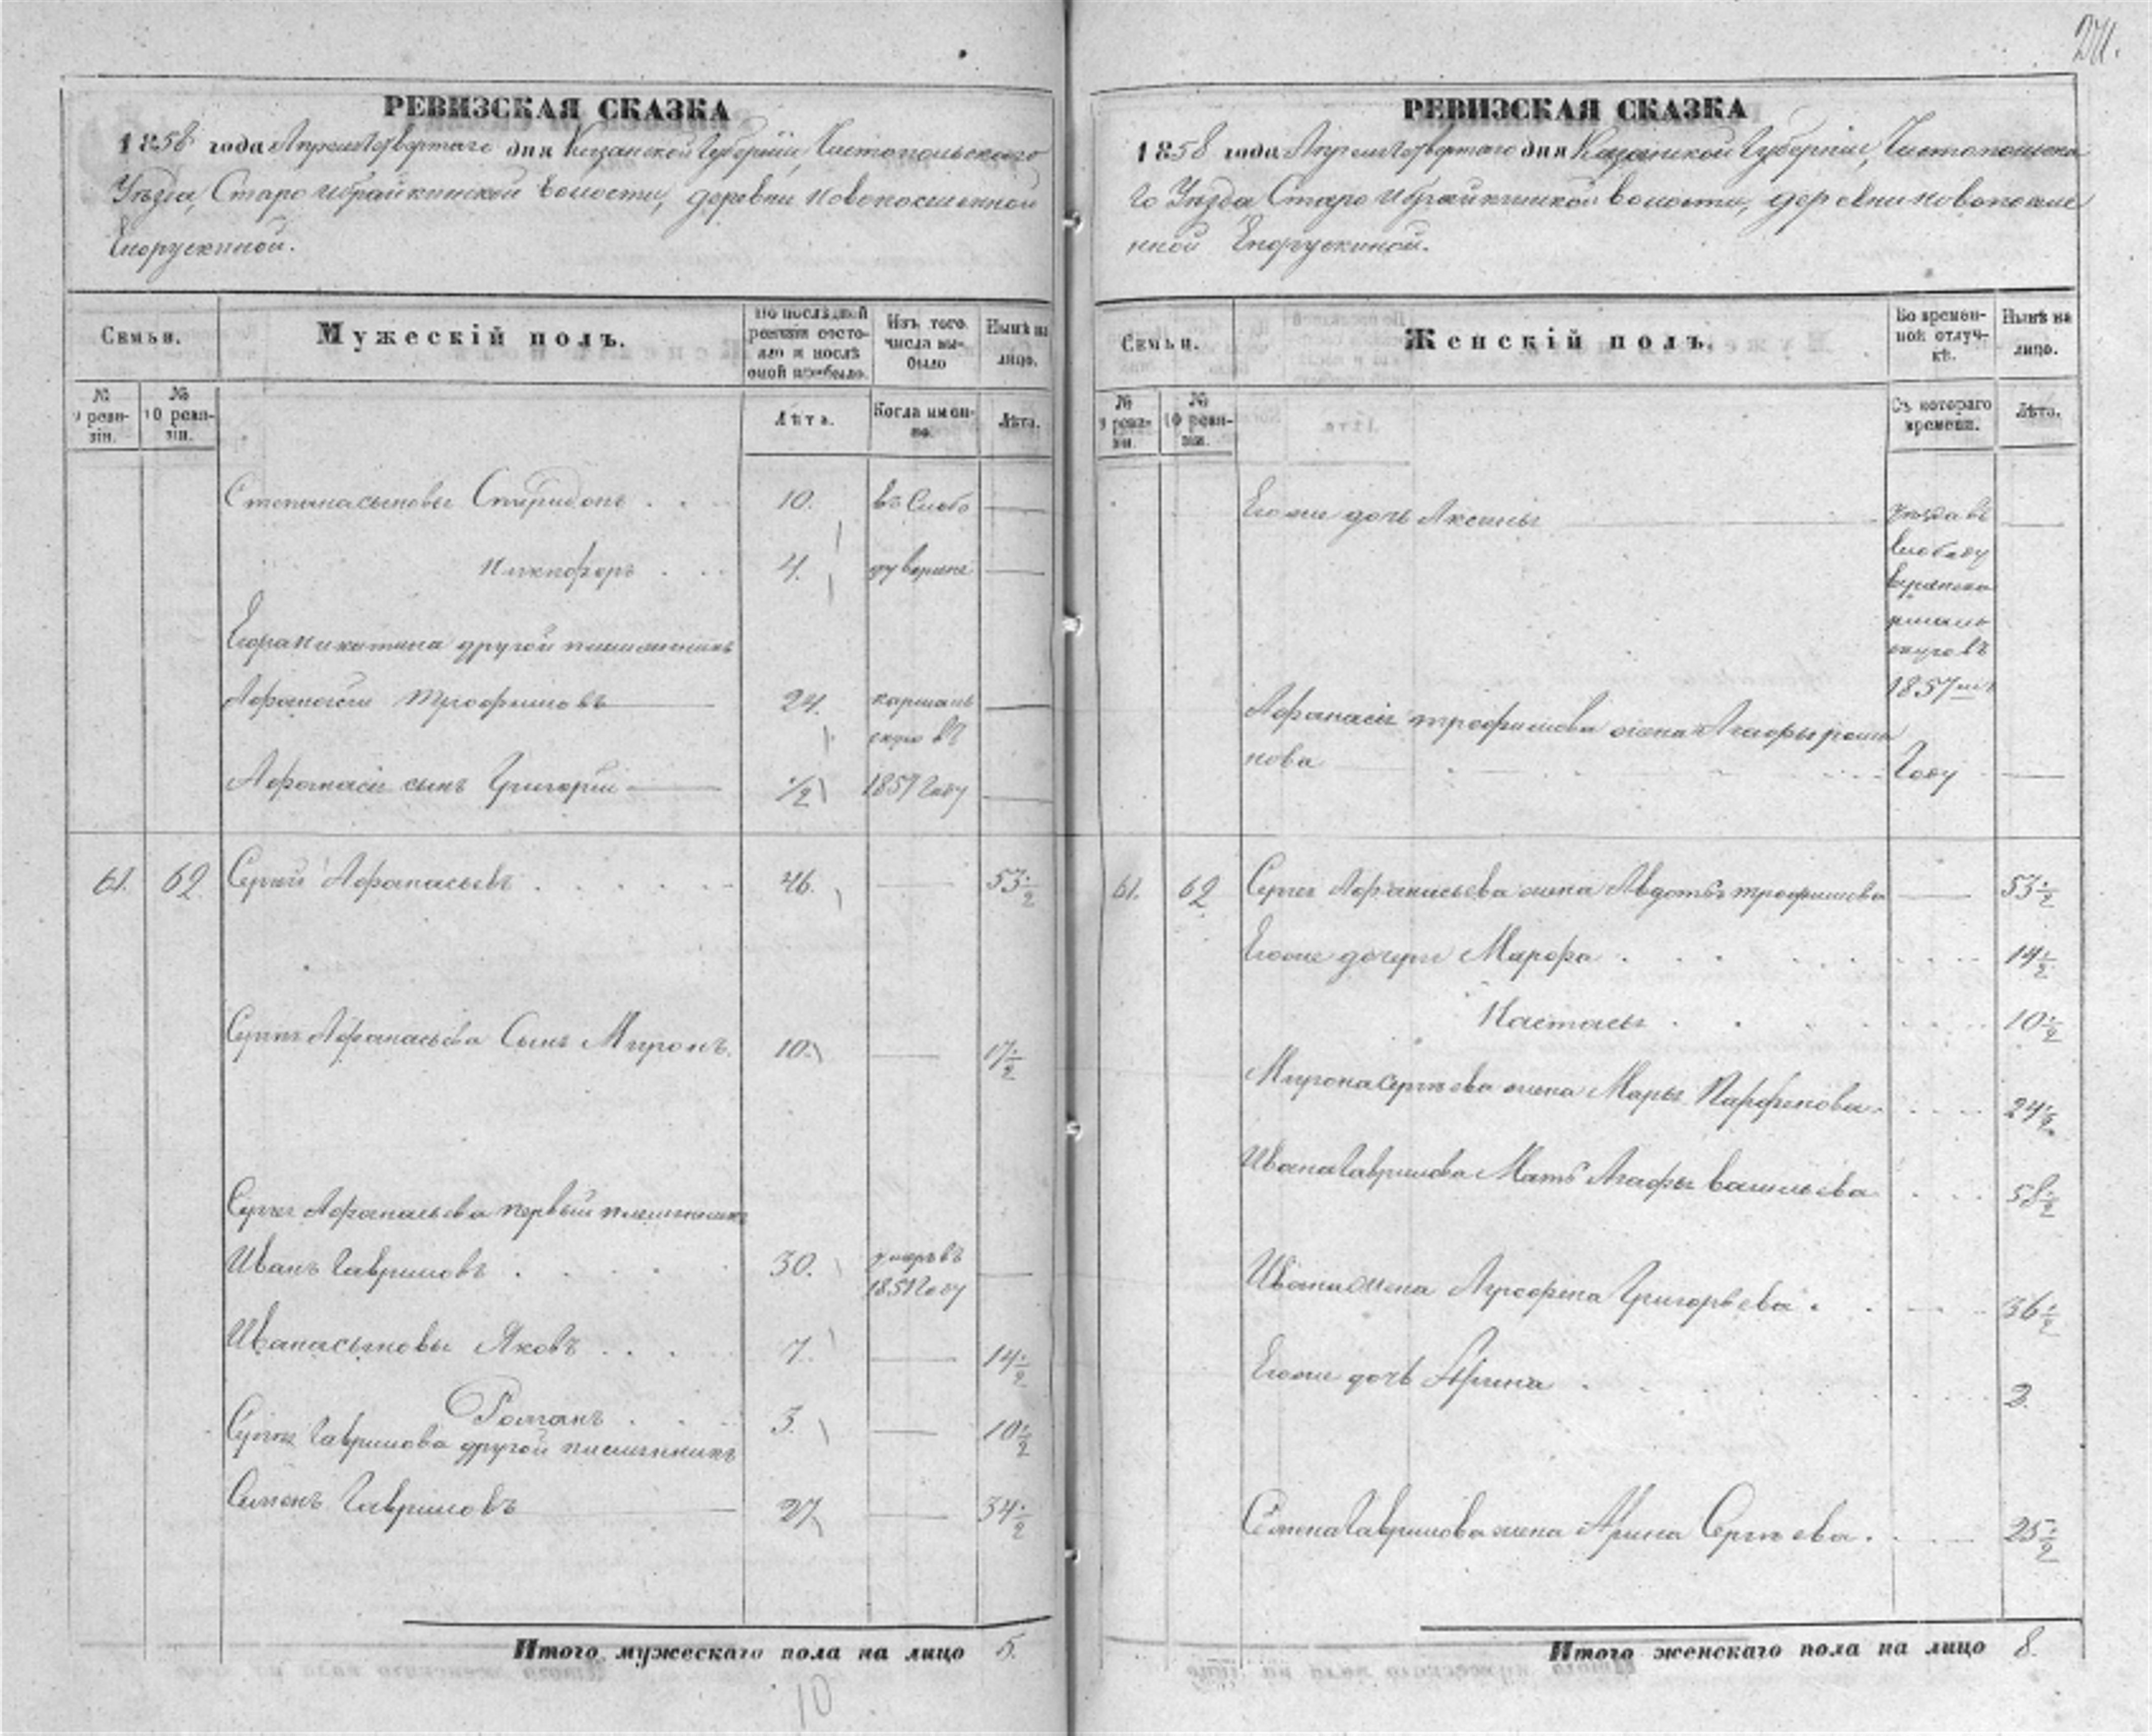 271.
РЕВИЗСКАЯ СКАЗКА
1858 года Апреля Четвертаго дня Казанской Губернии, Чистопольского
Уезда, Староибрайкинской волости, деревни Новопоселенной
Енорускиной.
Семьи.
Мужескій полъ.
По последней ревизіи состояло и после оной прибыло.
Изъ того числа выбыло
Ныне на лицо.
№ 9 ревизіи.
№ 10 ревизіи.
Лѣта.
Когда именно.
Лѣта.
Степана сыновья Спиридонъ 10. въ Слобо
Никифоръ 4.
Егора Никитина другой племянникъ
Афанасий Трофимовъ 24.
1857 году
Афанасія сынъ Григорій 1/2
61. 62 Сергий Афанасьевъ 46. 53 1/2
Сергея Афанасьева Сынъ Миронъ. 10. 17 1/2
Сергея Афанасьева первый племянникъ
Иванъ Гавриловъ 30. умеръ въ
1851 году
Ивана сыновья Яковъ 7. 14 1/2
Романъ 3. 10 1/2
Сергея Гаврилова другой племянникъ
Семенъ Гавриловъ 27 34 1/2
Итого мужескаго пола на лицо 5.
10
РЕВИЗСКАЯ СКАЗКА
1858 года Апреля Четвертаго дня Казанской Губернии, Чистопольска
го Уезда Староибрайкинской волости, деревни новопоселе
нной Енорускиной.
Семьи.
Женскій полъ.
Во временной отлучкѣ.
Нынѣ на лицо.
№ 9 ревизіи.
№ 10 ревизіи.
Съ котораго времени.
Лѣта.
Его же дочь Аксинья
слободу
1857
Афанасія трофимова жена Агафья рома
нова году
61. 62 Сергея Афанасьева жена Авдотья трофимова 53 1/2
Его же дочери Марфа 14 1/2
Настасья 10 1/2
Мирона Сергеева жена Марья Парфенова. 24 1/2
Ивана Гаврилова Мать Агафья васильева 58 1/2
Ивана жена Агрофена Григорьева. 36 1/2
Его же дочь Арина 2.
Семена Гаврилова жена Арина Сергеева. 25 1/2
Итого женскаго пола на лицо 8.